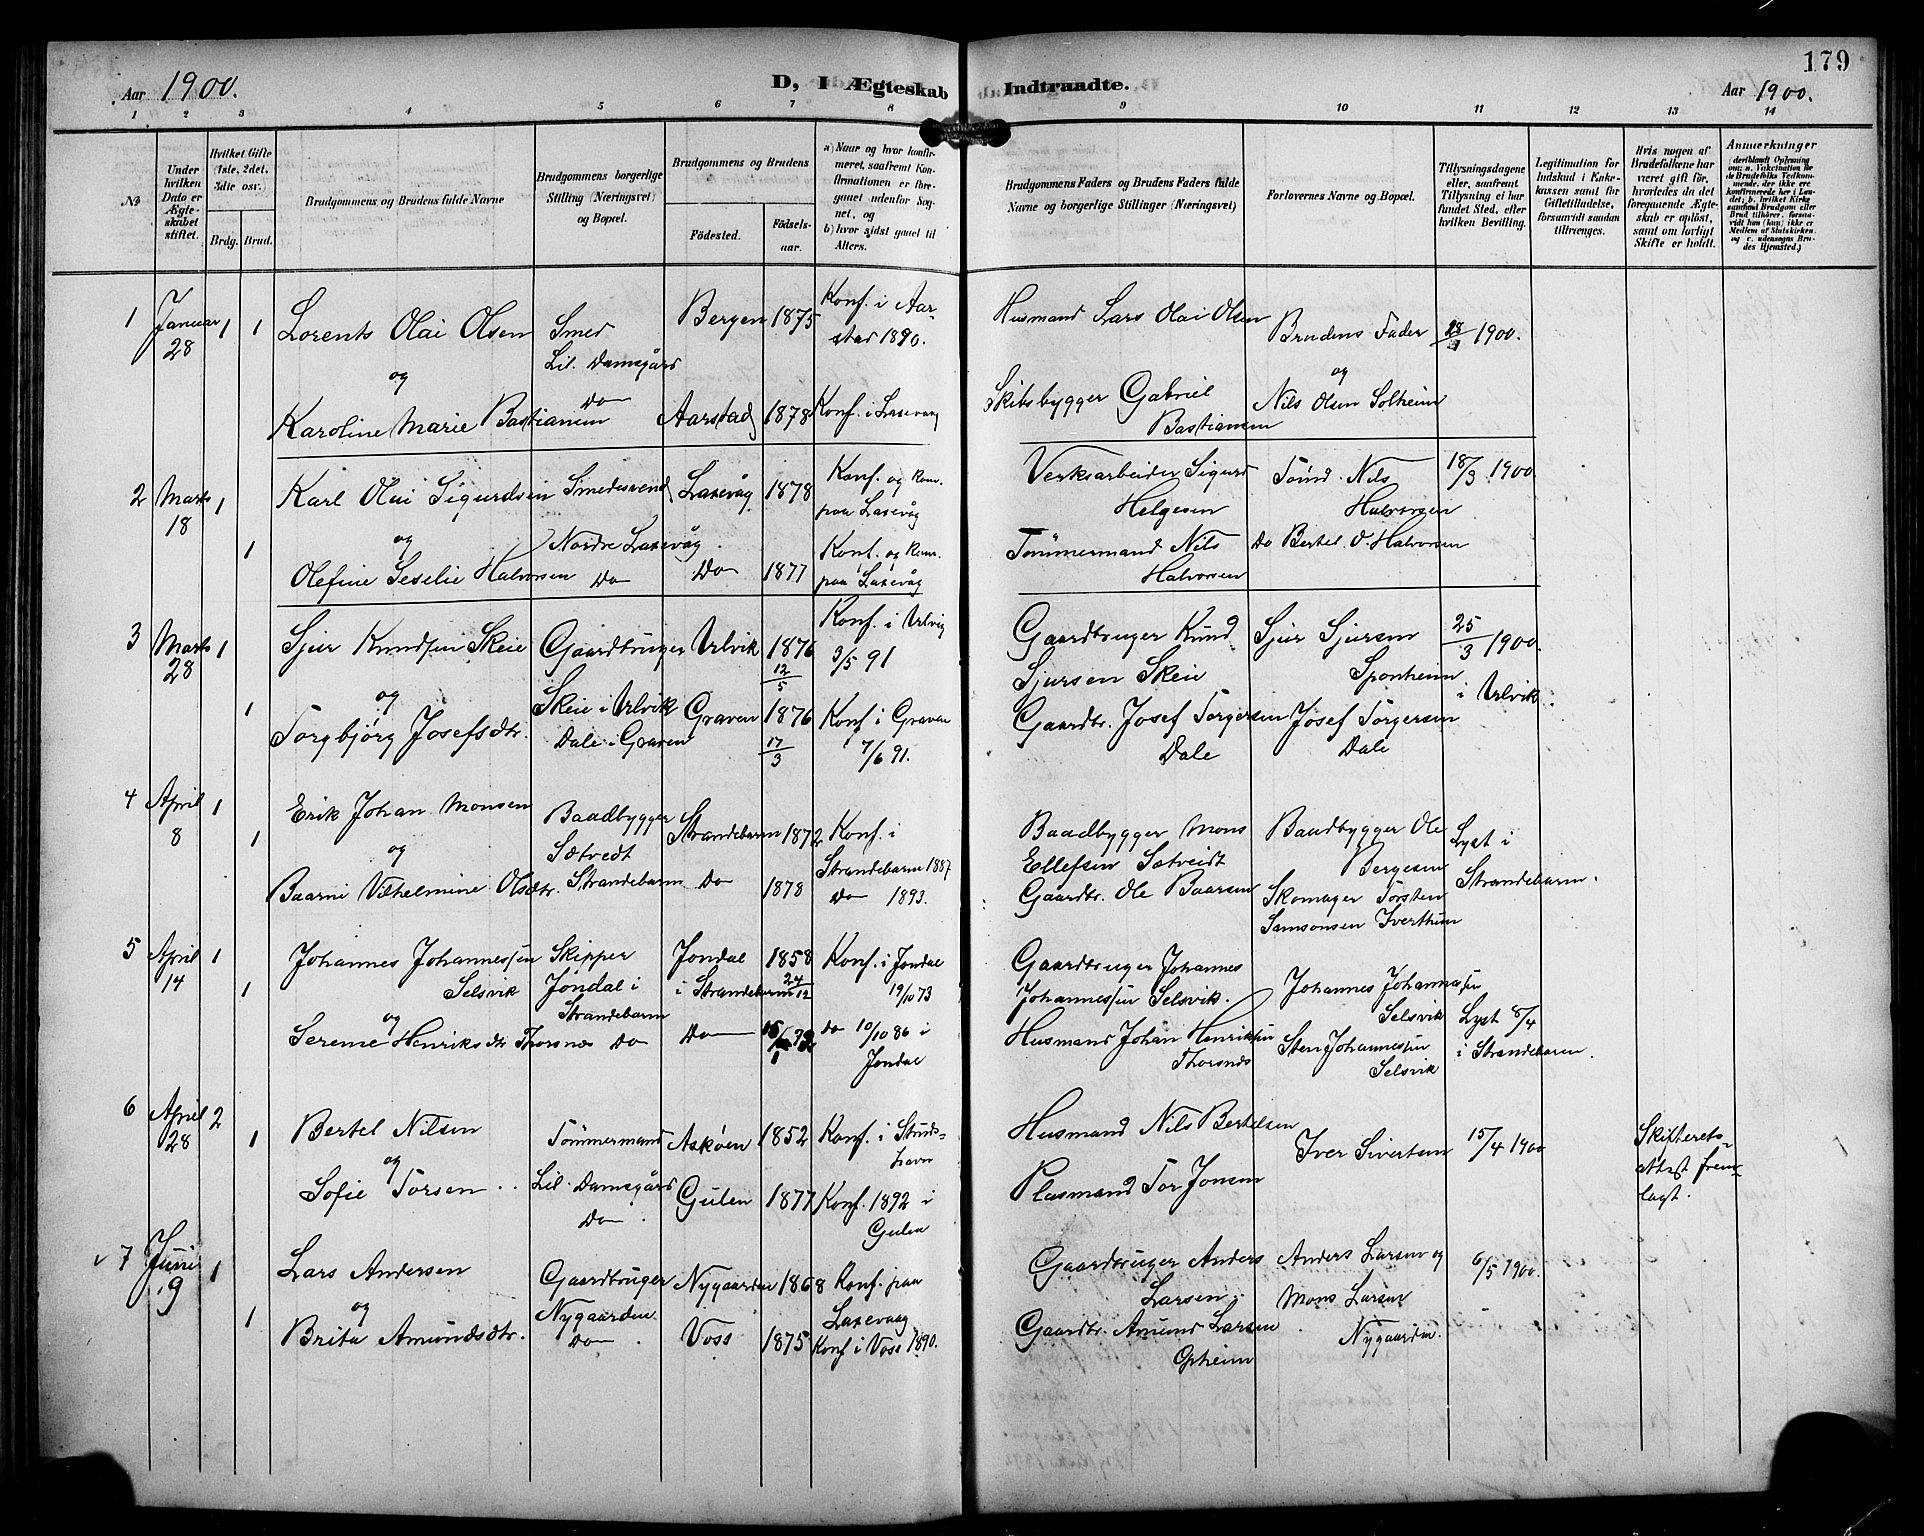 179
Aar 1900.
D, I Ægteskab Indtraadte.
Aar 1900.
1 2 3 4 5 6 7 8 9 10 11 12 13 14
No
Under hvilken Dato er Ægteskabet stiftet.
Hvilket Gifte (1ste, 2det, 3die osv.)
Brdg. Brud.
Brudgommens og Brudens fulde Navne
Brudgommens borgerlige Stilling (Næringsvei) og Bopæl.
Brudgommens og Brudens
Fødested. Fødselsaar.
a) Naar og hvor konfirmeret, saafremt Konfirmationen er foregaaet udenfor Sognet, og
b) hvor sidst gaaet til Alters.
Brudgommens Faders og Brudens Faders fulde Navne og borgerlige Stillinger (Næringsvei)
Forlovernes Navne og Bopæl.
Tillysningsdagene eller, saafremt Tillysning ei har fundet Sted, efter hvilken Bevilling.
Legitimation for Indskud i Enkekassen samt for Giftetilladelse, forsaavidt saadan tiltrænges.
Hvis nogen af Brudefolkene har været gift før, hvorledes da det foregaaende Ægteskab er opløst, samt om lovligt Skifte er holdt.
Anmerkninger (deriblandt Oplysning om: a. Vakcination for de Brudefolks Vedkommende, der ikke ere konfirmerede her i Landet; b. hvilket Kirkesamfund Brudgom eller Brud tilhører, forsaavidt han (hun) ikke er Medlem af Statskirken, og c. udensogns Brudes Hjemsted.)
1 Januar 28 1 1
Lorents Olai Olsen
og
Karoline Marie Bastiansen
Smed
Lil. Damsgård
Do
Bergen 1875
Aarstad 1878
Konf. i Aarstad 1890.
Konf. i Laxevaag
Husmand Lars Olai Olsen
Skibsbygger Gabriel
Bastiansen
Brudens Fader
og
Nils Olsen Solheim
1900.
2 Marts 18 1 1
Karl Olai Sigurdsen
og
Olefine Seselie Halvorsen
Smedesvend
Nordre Laxevåg
Do
Laxevåg 1878
Do 1877
Konf. og kom.
paa Laxevåg
Konf. og kom.
paa Laxevåg
Verksarbeider Sigurd
Helgesen
Tømmermand Nils
Halvorsen
Tømd. Nils
Halvorsen
Do Bertel O. Halvorsen
18/3 1900
3 Marts 28 1 1
Sjur Knudsen Skeie
og
Torgbjörg Josefsdtr.
Gaardbruger
Skeie i Ulvik
Dale i Graven
Ulvik 1876
12/5
Graven 1876
17/3
Konf. i Ulvig
3/5 91
Konf. i Graven
7/6 91.
Gaardbruger Knud
Sjursen Skeie
Gaardbr. Josef Torgersen
Dale
Sjur Sjursen
Sponheim
Josef Torgersen
Dale
25/3 1900
i Ulvik
4 April 8 1 1
Erik Johan Monsen
og
Baarni Vilhelmine Olsdtr.
Baadbygger
Sætvedt
Strandebarm
Strandebarm 1872
Do 1878
Konf. i
Strandebarm 1887
Do 1893.
Baadbygger Mons
Ellefsen Sætveidt
Gaardbr. Ole Baarsen
Baadbygger Ole
Bergesen
Skomager Torsten
Samsonsen Tverthun
Lyst i
Strandebarm.
5 April 14 1 1
Johannes Johannessen
Selsvik
og
Serene Henriksdtr Thorsnæs
Skipper
Jondal i
Strandebarm
Do
Jondal 1858
i Strandebarm 24/12
Do
Konf. i Jondal
19/10 73
Do 10/10 86 i
Jondal
Gaardbruger Johannes
Johannessen Selsvik.
Husmand Johan Henriksen
Thorsnes
Johannes Johannessen
Selsvik
Sten Johannessen
Selsvik
Lyst 8/4
i Strandebarm.
6 April 28 2 1
Bertel Nilsen
og
Sofie Torsen
Tømmermand
Lil. Damsgård
Do
Askøen 1852
Gulen 1877
Konf. i Strudshavn
Konf. 1892 i
Gulen
Husmand Nils Bertelsen
Plasmand Tor Jonsen
Iver Sivertsen
15/4 1900
Skifteretsattest fremlagt.
7 Juni 9 1 1
Lars Andersen
og
Brita Amundsdtr.
Gaardbruger
Nygaarden
Do
Nygaarden 1868
Voss 1875
Konf. paa
Laxevaag
Konf i Voss 1890.
Gaardbruger Anders
Larsen
Gaardbr. Amund Larsen
Opheim
Anders Larsen og
Mons Larsen
Nygaarden.
6/5 1900.